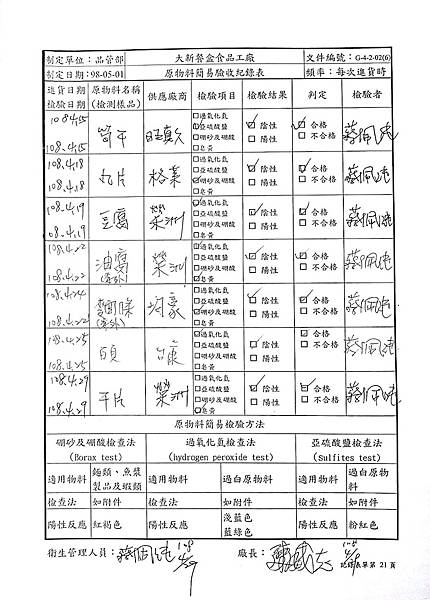 大新餐盒食品工廠
制定單位：品管部
文件編號：G-4-2-02(6)
制定日期：98-05-01
原物料簡易驗收紀錄表
頻率：每次進貨時
進貨日期 檢驗日期
原物料名稱 (檢測樣品)
供應廠商
檢驗項目
檢驗結果
判定
檢驗者
108.4.15
108.4.15
筍干
□過氧化氫
□亞硫酸鹽
□硼砂及硼酸
□皂黃
陰性
□陽性
合格
□不合格
108.4.18
108.4.18
丸片
□過氧化氫
□亞硫酸鹽
硼砂及硼酸
□皂黃
陰性
□陽性
合格
□不合格
108.4.19
108.4.19
豆腐
榮洲
過氧化氫
□亞硫酸鹽
□硼砂及硼酸
□皂黃
陰性
□陽性
合格
□不合格
108.4.22
108.4.22
油腐
榮洲
過氧化氫
□亞硫酸鹽
□硼砂及硼酸
皂黃
陰性
□陽性
合格
□不合格
108.4.24
108.4.22
過氧化氫
□亞硫酸鹽
硼砂及硼酸
□皂黃
陰性
□陽性
合格
□不合格
108.4.25
108.4.25
過氧化氫
□亞硫酸鹽
□硼砂及硼酸
□皂黃
陰性
□陽性
合格
□不合格
108.4.29
108.4.29
干片
榮洲
□過氧化氫
□亞硫酸鹽
□硼砂及硼酸
皂黃
陰性
□陽性
合格
□不合格
原物料簡易檢驗方法
硼砂及硼酸檢查法 (Borax test)
過氧化氫檢查法 (hydrogen peroxide test)
亞硫酸鹽檢查法 (Sulfites test)
適用物料
麵類、魚漿製品及蝦類
適用物料
過白原物料
適用物料
過白原物料
檢查法
如附件
檢查法
如附件
檢查法
如附件
陽性反應
紅褐色
陽性反應
淺藍色 藍綠色
陽性反應
粉紅色
衛生管理人員：
廠長：
記錄表單第 21 頁